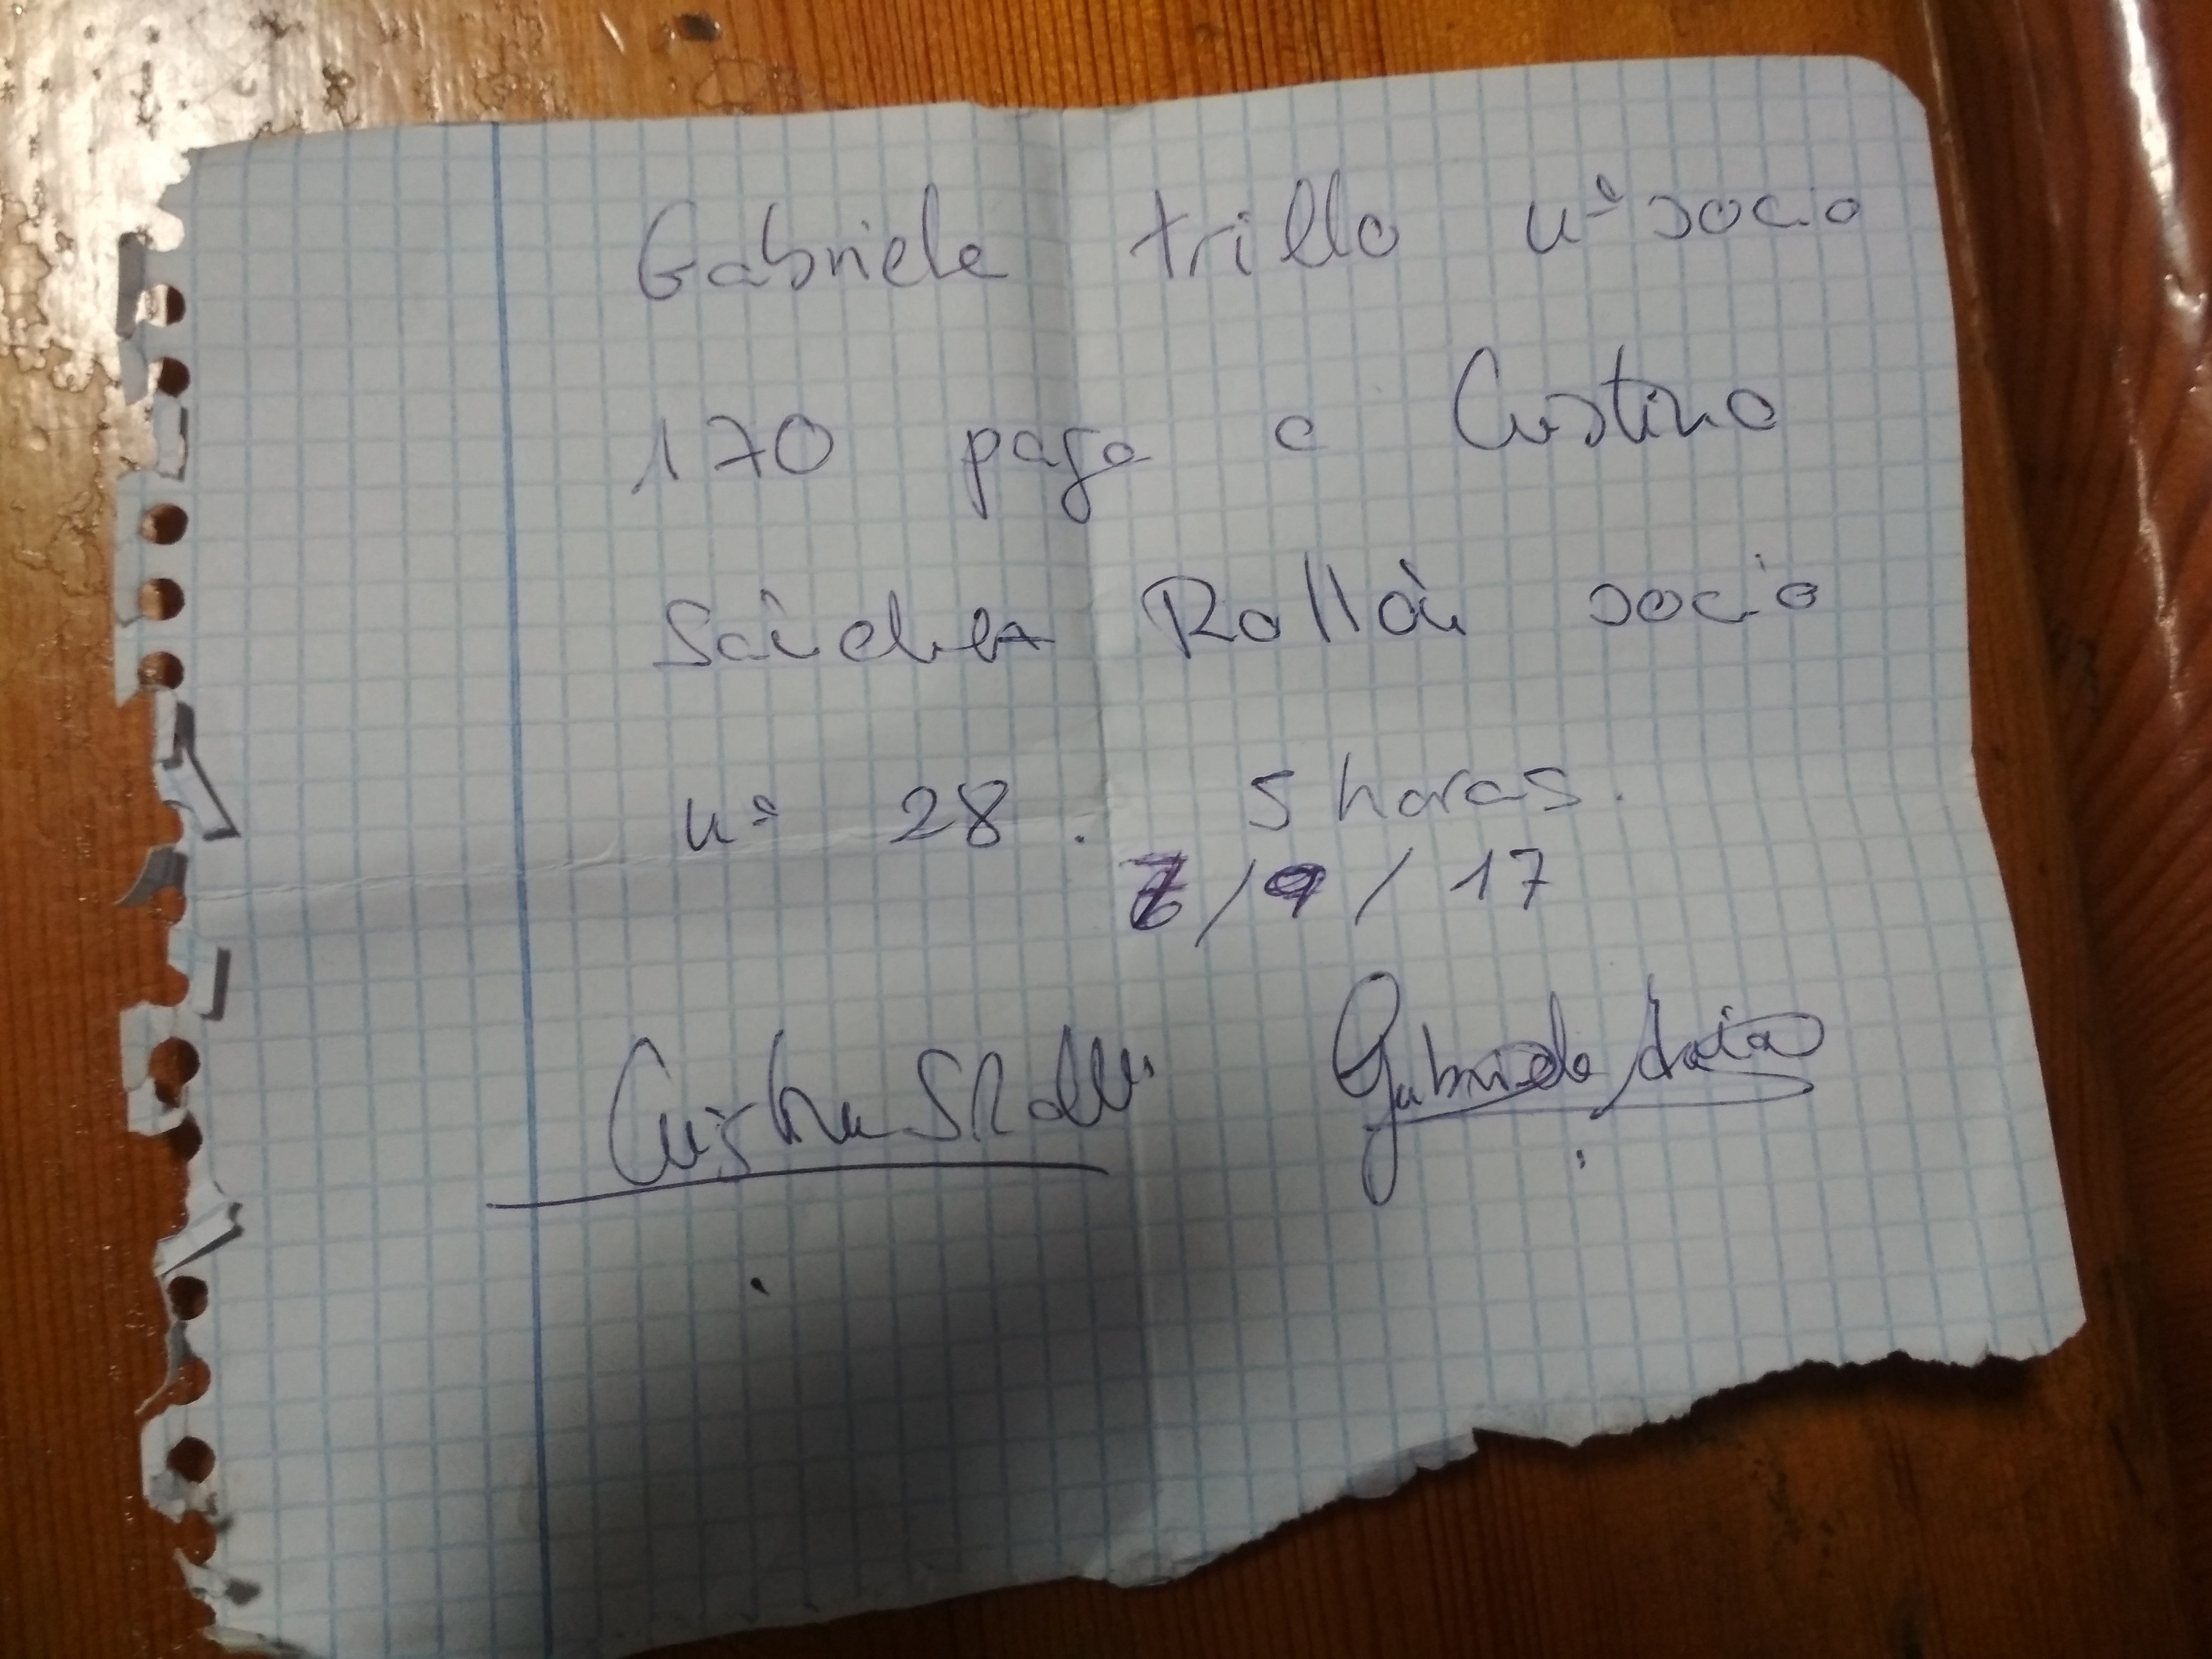 Gabriele trillo nº socio
170 paga a Cristina
Sánchez Rollán socio
nº 28. 5 horas.
7/9/17
Cristina SRollán
Gabriele